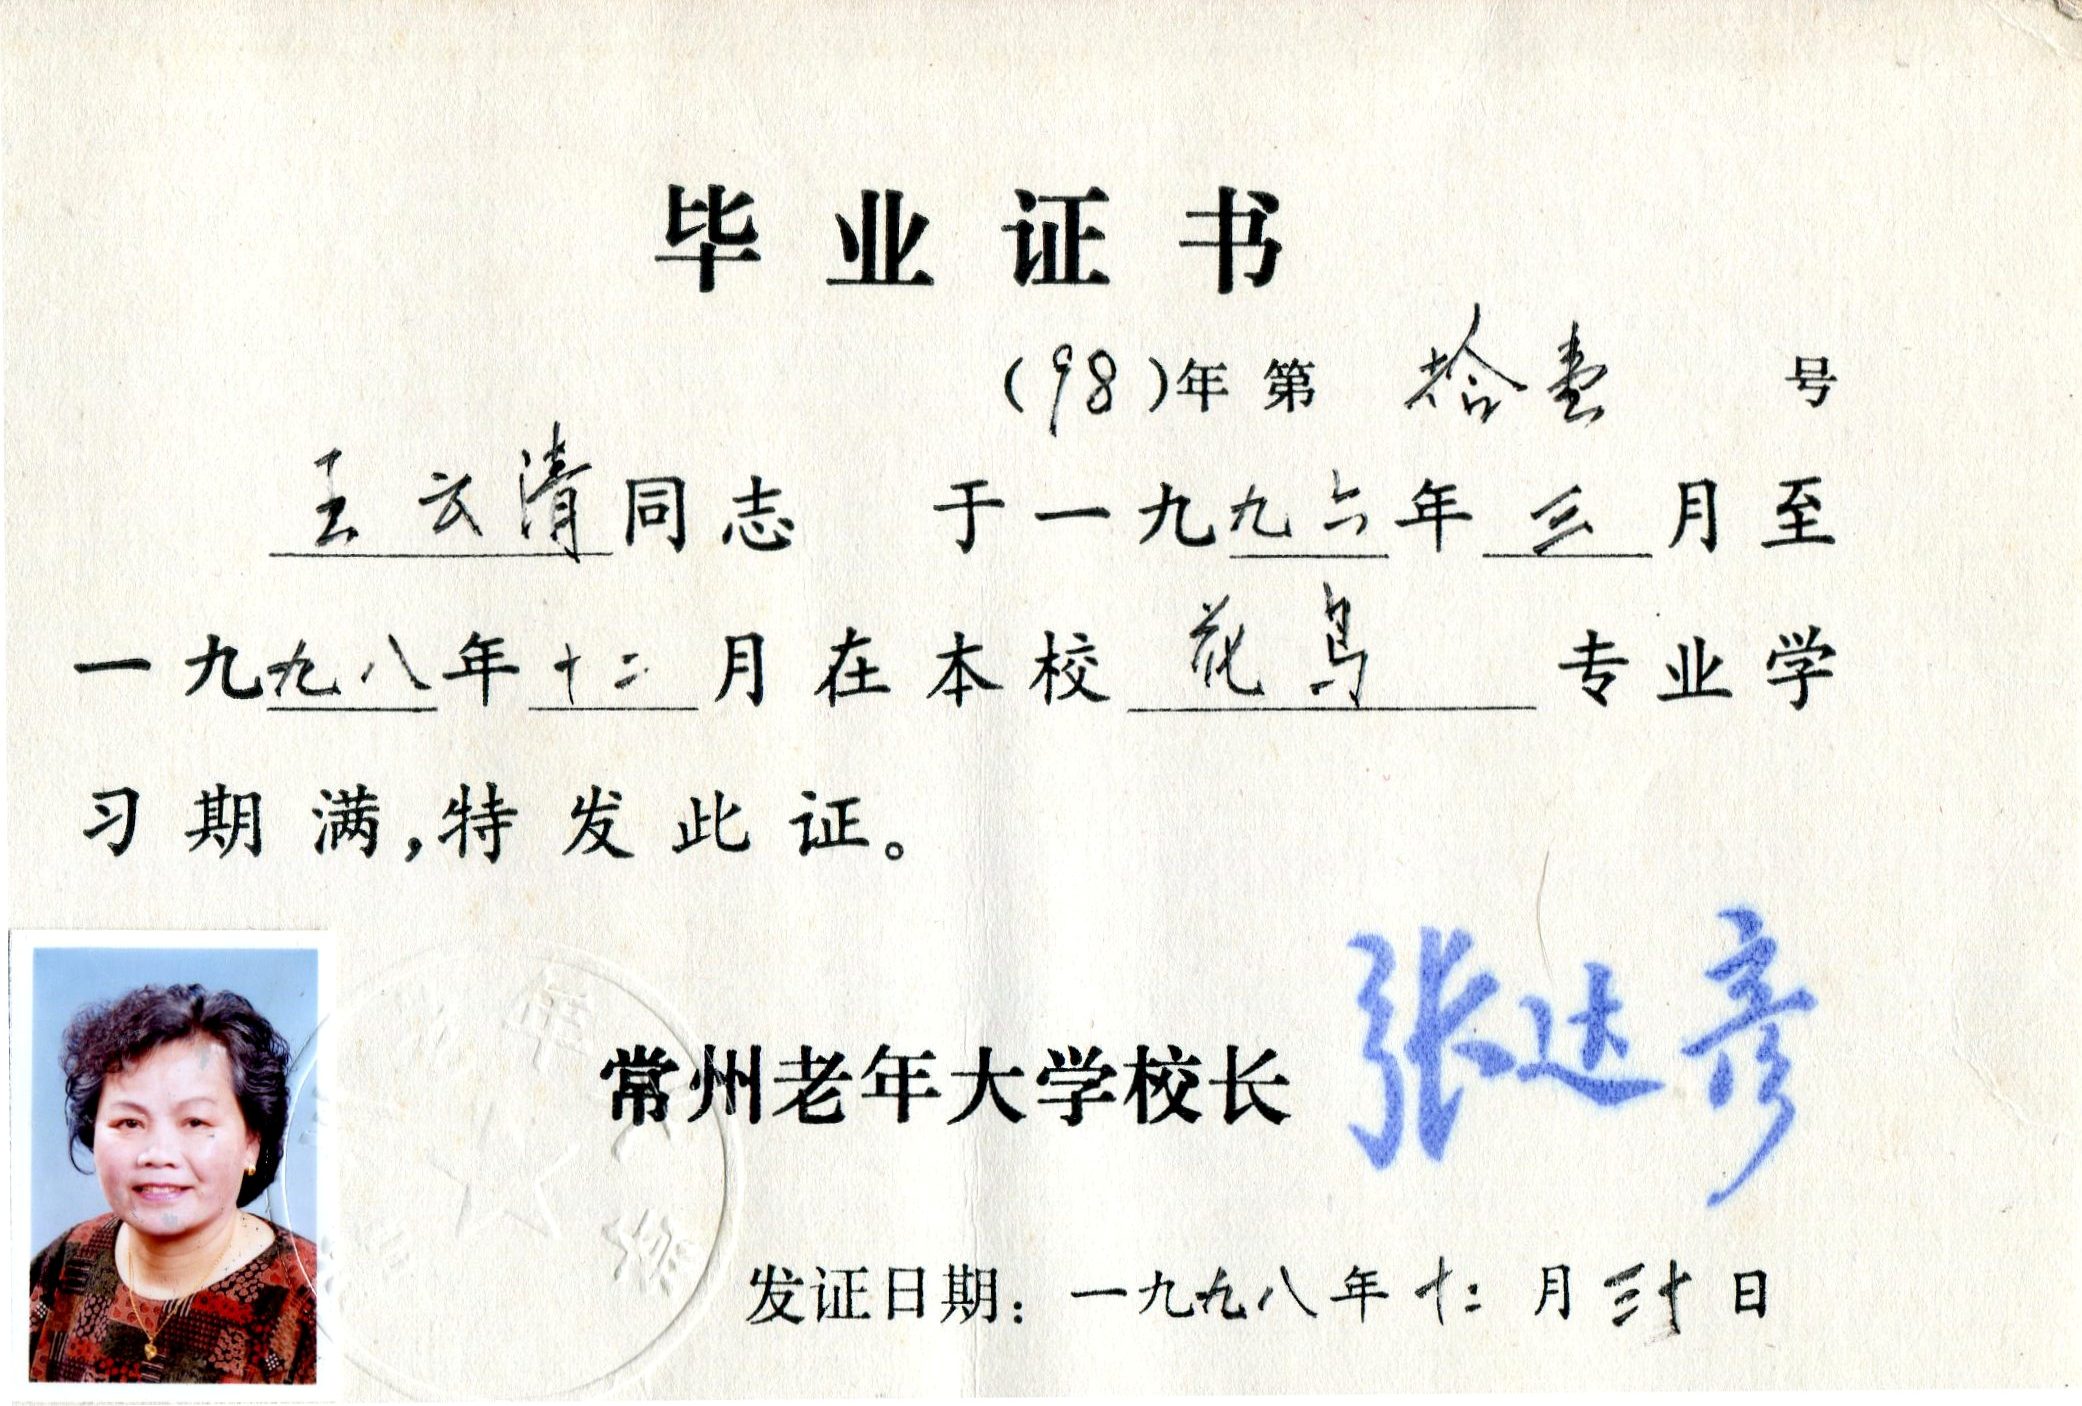 毕业证书
(98)年第 拾壹 号
王云清同志 于一九九六年三月至
一九九八年十二月在本校花鸟专业学
习期满,特发此证。
常州老年大学校长 张达彦
发证日期：一九九八年十二月三十日